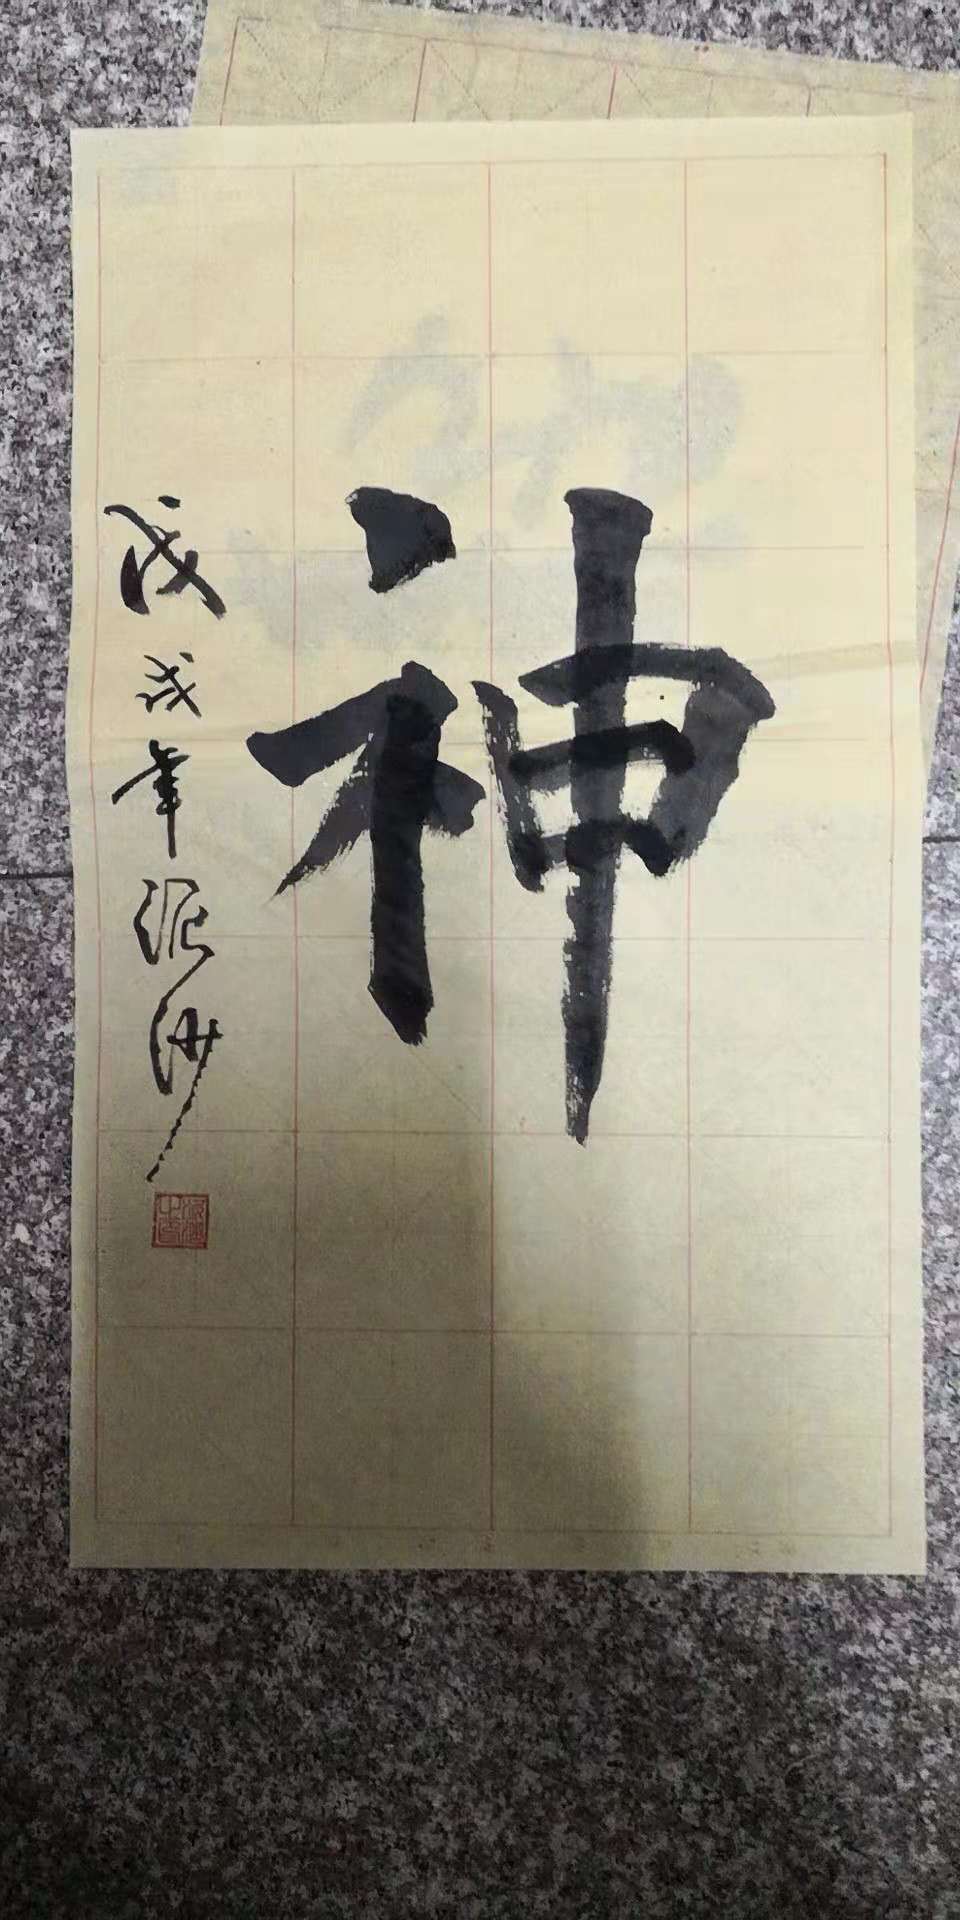 神
戊戌年泥沙